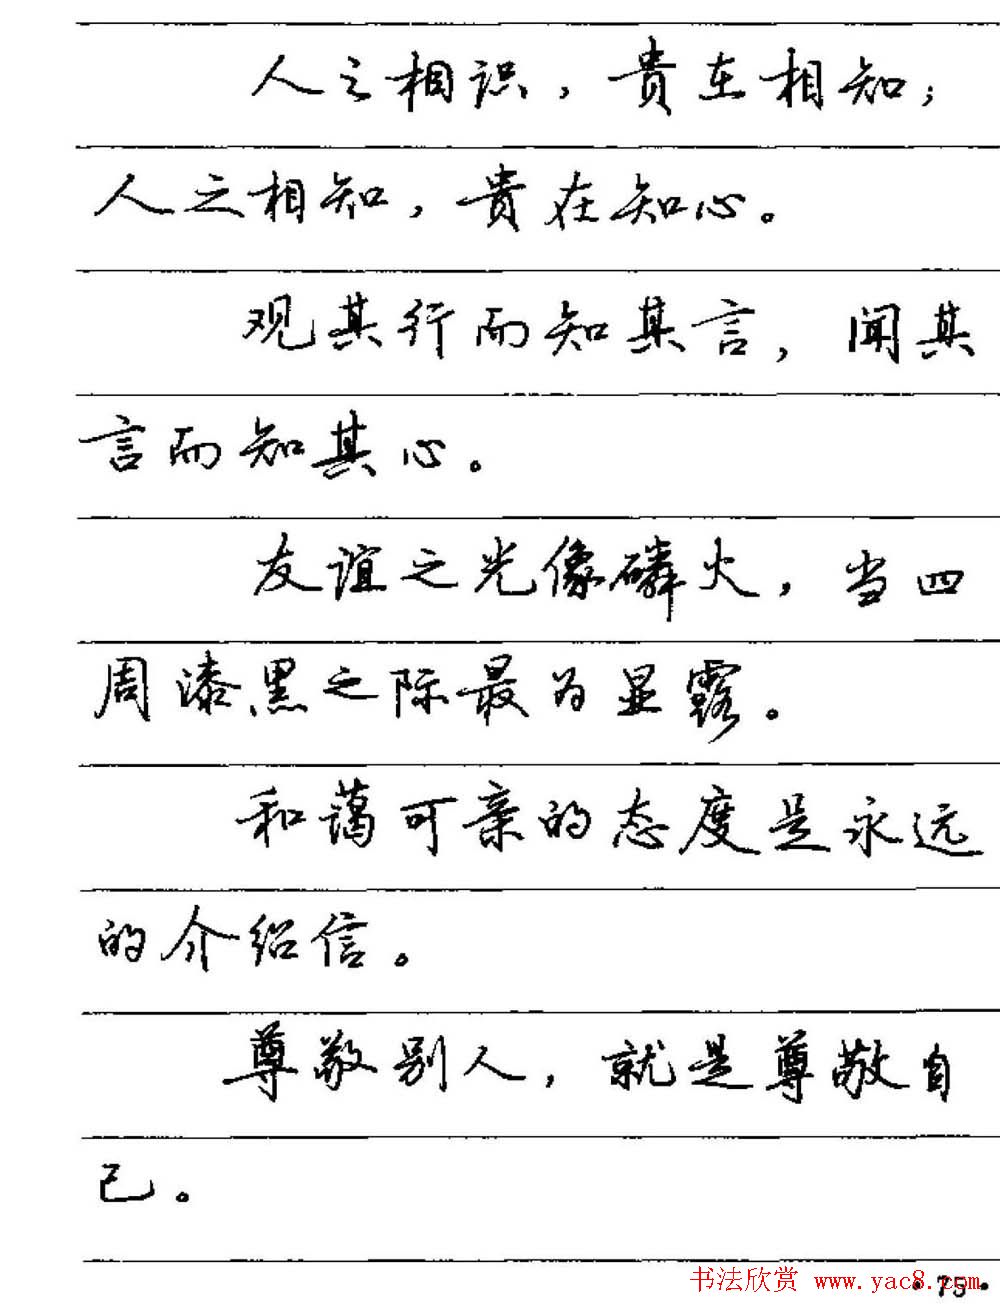 人之相识，贵在相知；
人之相知，贵在知心。
观其行而知其言，闻其
言而知其心。
友谊之光像磷火，当四
周漆黑之际最为显露。
和蔼可亲的态度是永远
的介绍信。
尊敬别人，就是尊敬自
己。
书法欣赏 www.yac8.com
·75·